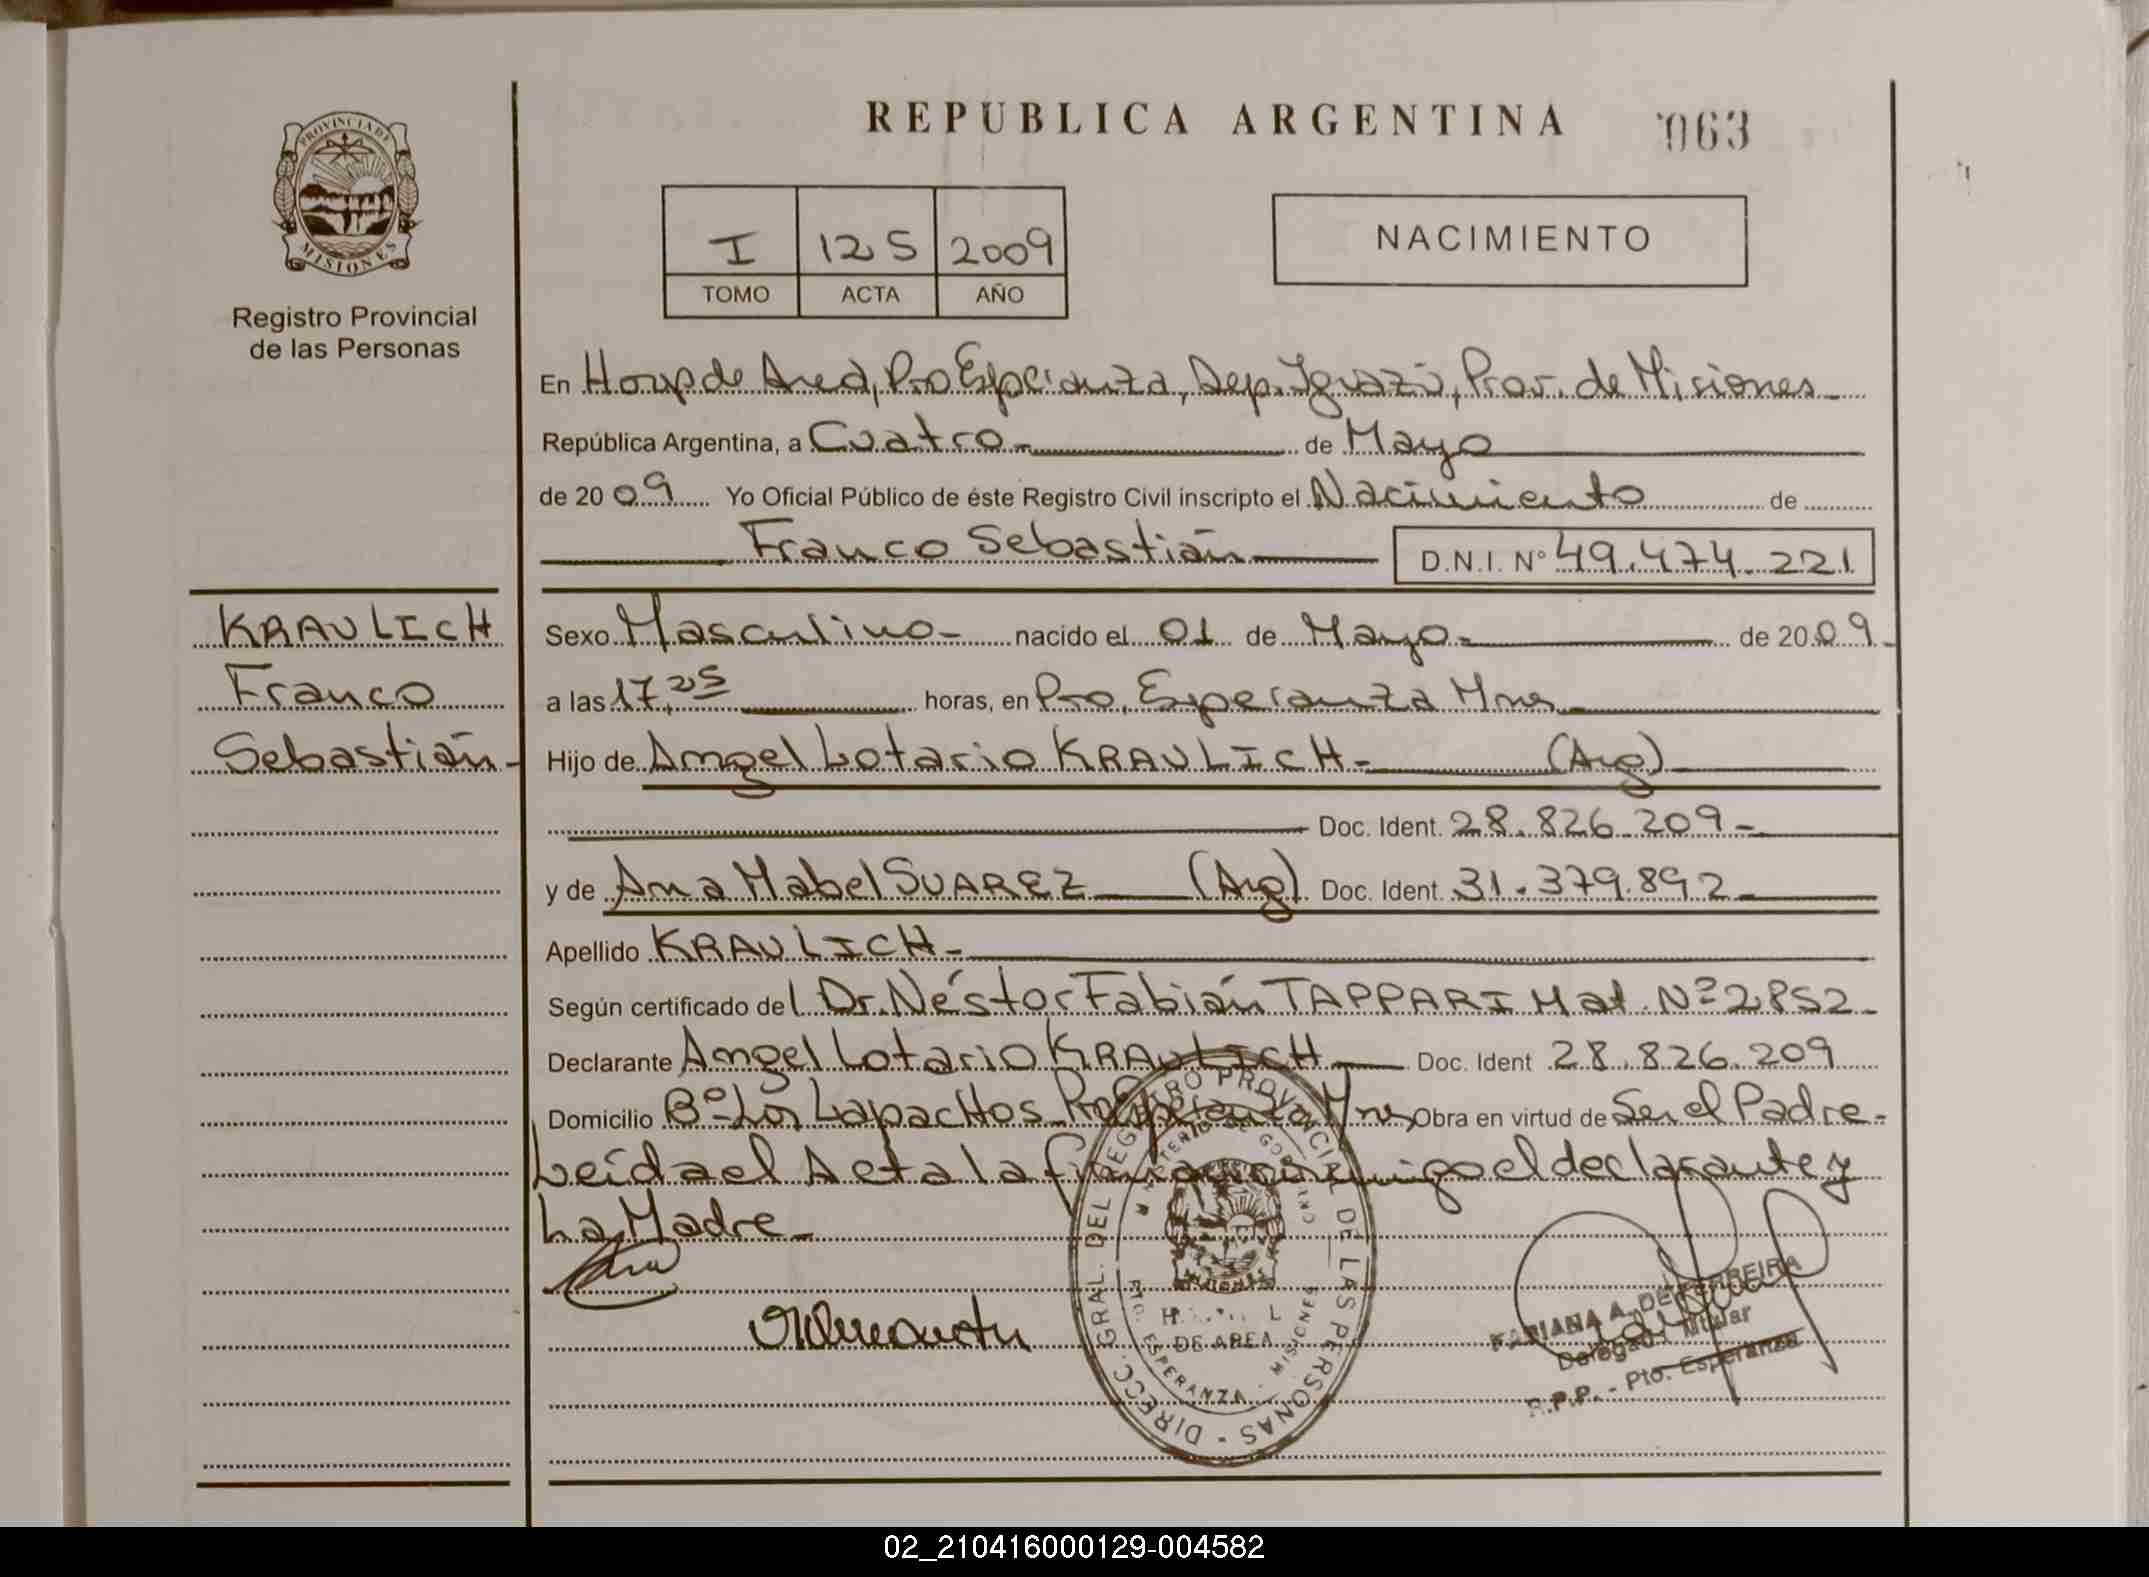 REPUBLICA ARGENTINA
063
PROVINCIA DE
MISIONES
Registro Provincial
de las Personas
I 125 2009
TOMO ACTA AÑO
NACIMIENTO
En Hosp de Area, Pto Esperanza, Dep. Iguazú, Prov. de Misiones
República Argentina, a Cuatro- de Mayo
de 20 09 Yo Oficial Público de éste Registro Civil inscripto el Nacimiento de
Franco Sebastián
D.N.I. Nº 49.474.221
KRAULICH
Franco
Sebastián-
Sexo Masculino- nacido el 01 de Mayo- de 20 09-
a las 17,25 horas, en Pto. Esperanza Mnes
Hijo de Angel Lotario KRAULICH- (Arg)
Doc. Ident. 28.826.209-
y de Ana Mabel SUAREZ (Arg). Doc. Ident. 31.379.892
Apellido KRAULICH-
Según certificado del Dr. Néstor Fabián TAPPARI Mat. Nº 2852-
Declarante Angel Lotario KRAULICH Doc. Ident 28.826.209
Domicilio Bº Los Lapachos Pto Esperanza Mnes Obra en virtud de Ser el Padre-
Leída el Acta la firman conmigo el declarante y
La Madre-
DIRECC. GRAL. DEL REGISTRO PROVINCIAL DE LAS PERSONAS -
MINISTERIO DE GOBIERNO
MISIONES
DE AREA
PTO. ESPERANZA - MISIONES
FABIANA A. DE FERREIRA
Delegada Titular
R.P.P. - Pto. Esperanza
02_210416000129-004582